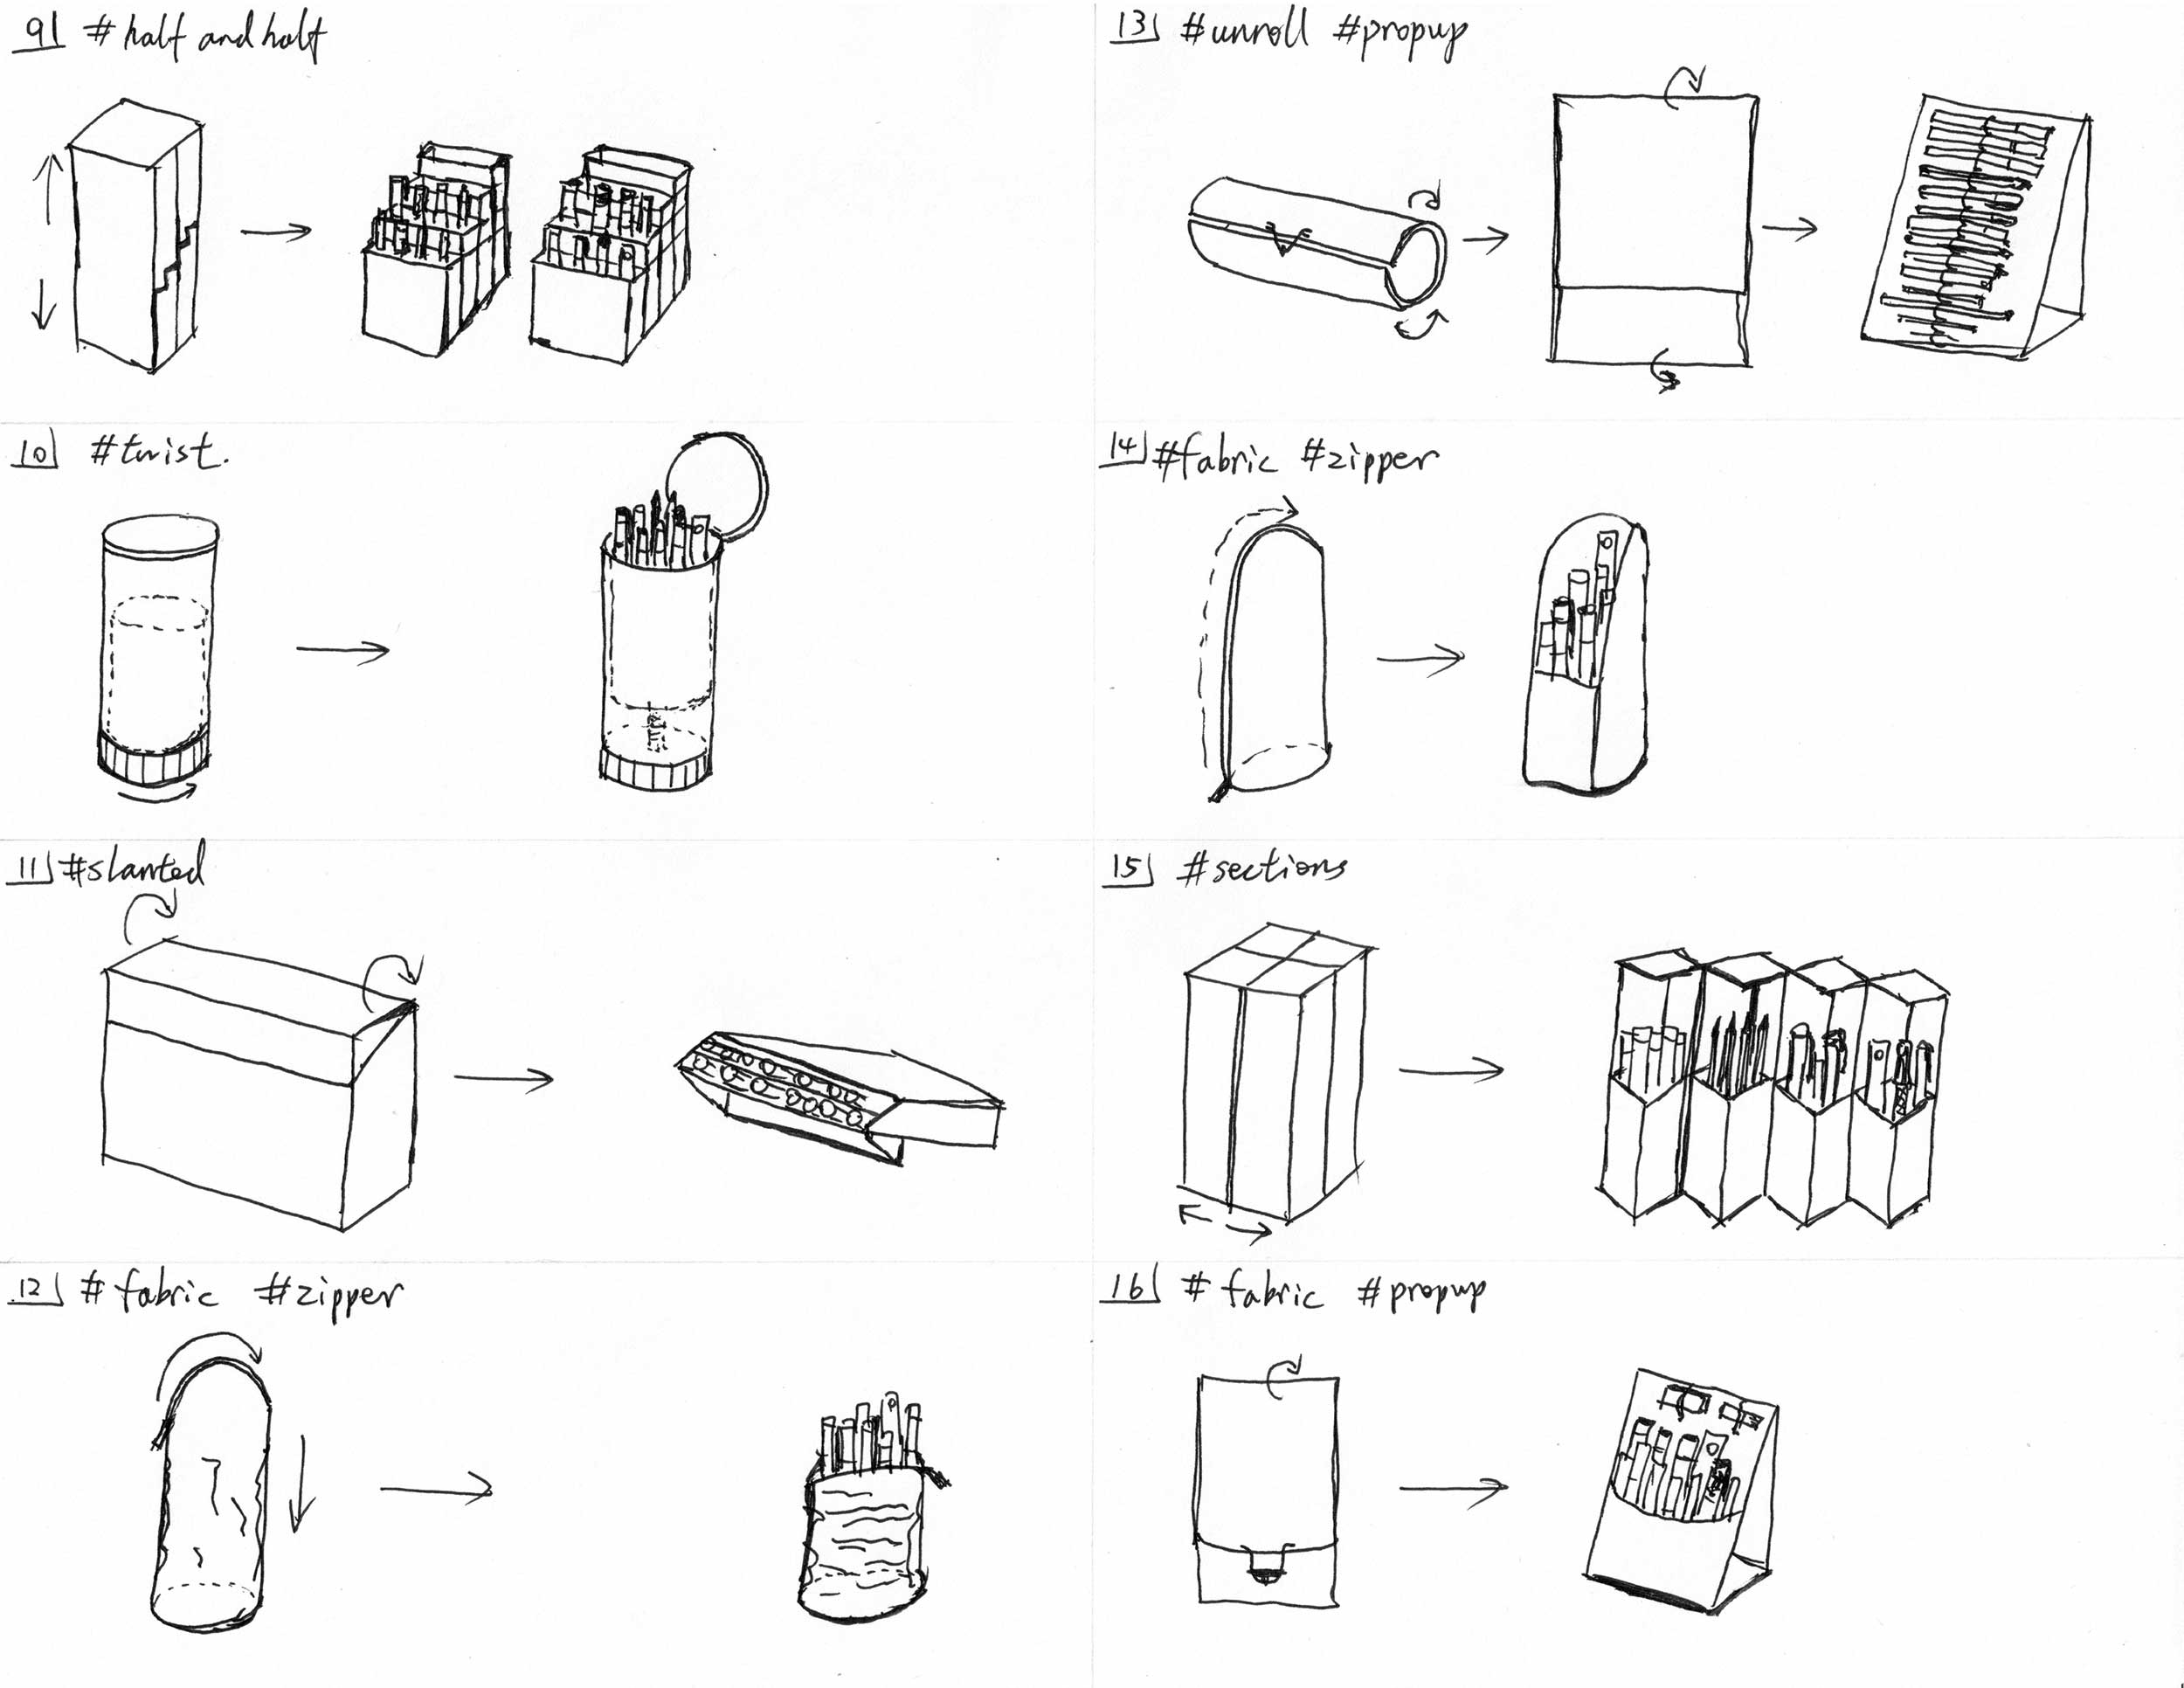 9 #half and half
10 #twist.
11 #slanted
12 #fabric #zipper
13 #unroll #propup
14 #fabric #zipper
15 #sections
16 #fabric #propup